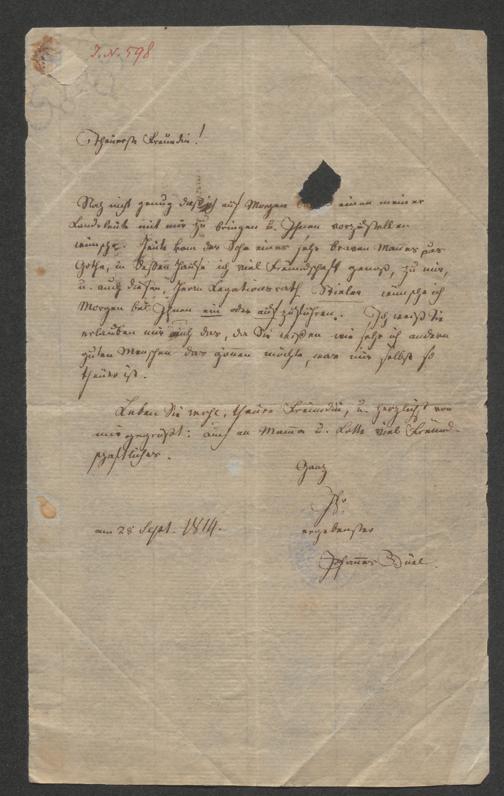 I. N. 598
Theuerste Freundin!
Noch nicht genug daß ich auf Morgen einen meiner
Landsleute mit mir zu bringen u. Ihnen vorzustellen
wünsche. Heute kam der Sohn eines sehr braven Mannes aus
Gotha, in deßen Hause ich viel Freundschaft genoß, zu mir,
u. auch diesen, Herrn Legationsrath Stieler wünsche ich
Morgen bei Ihnen ein oder aufzuführen. Ich weiß Sie
erlauben mir auch das, da Sie wißen wie sehr ich andern
guten Menschen das gönnen möchte, was mir selbst so
theuer ist.
Leben Sie wohl, theure Freundin, u. herzlichst von
mir gegrüßt: auch an Mamma u. Lotte viel Freund-
schaftliches.
Ganz
Ihr
am 28 Sept. 1814.
ergebenster
Johannes Büel.